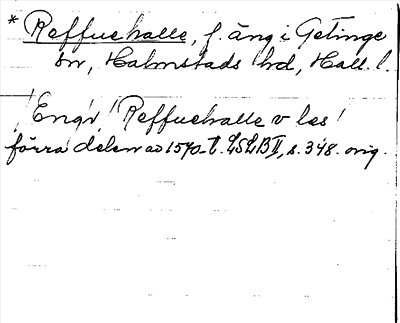 * Reffuehalle, f. äng i Getinge
sn, Halmstads hd, Hall. l.
'Engv' 'Reffuehalle v les'
förra delen av 1570-t. LSLB II, s. 348. orig.